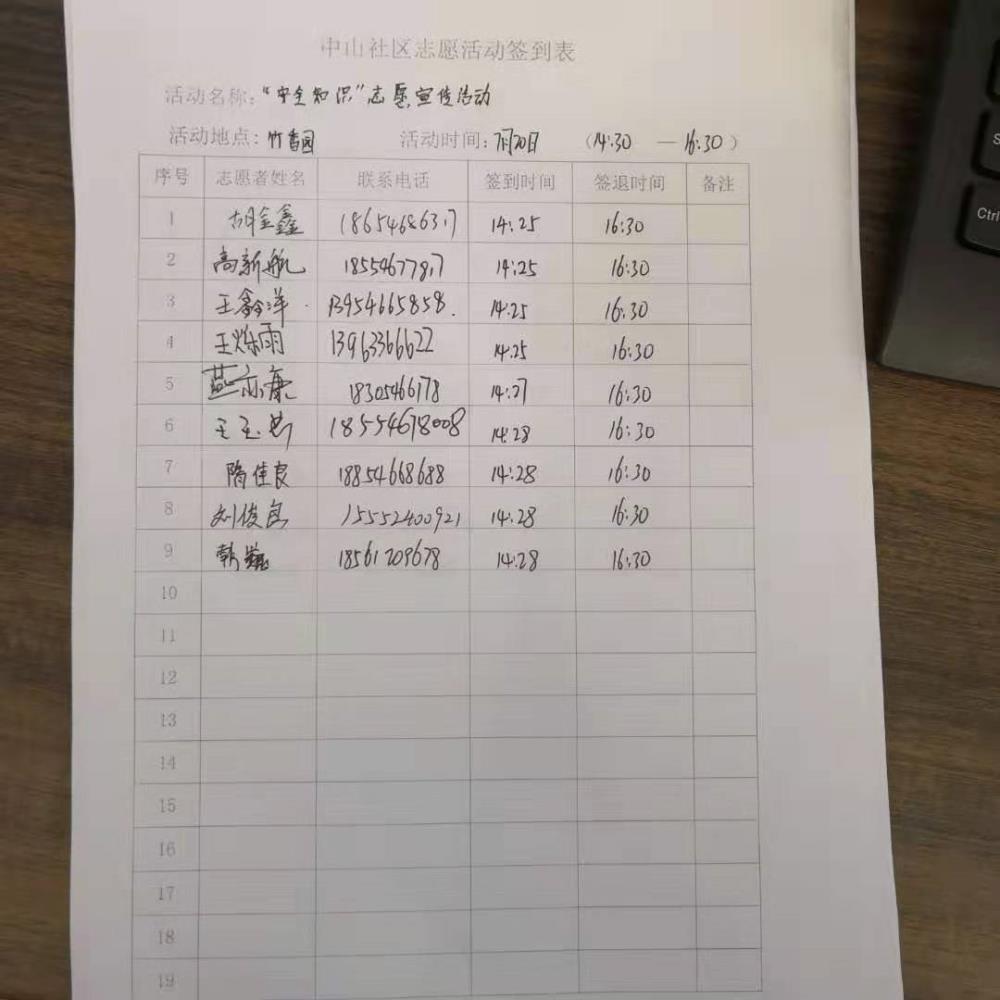 中山社区志愿活动签到表
活动名称："安全知识"志愿宣传活动
活动地点：竹香园 活动时间：7月20日 （14:30 — 16:30）
序号 志愿者姓名 联系电话 签到时间 签退时间 备注
1 胡金鑫 18654686317 14:25 16:30
2 高新航 18554677817 14:25 16:30
3 王鑫洋 13954665858. 14:25 16:30
4 王烁雨 13963366622 14:25 16:30
5 燕亦康 18305466178 14:27 16:30
6 18554678008 14:28 16:30
7 隋佳良 18854668688 14:28 16:30
8 刘俊良 15552400921 14:28 16:30
9 韩 18561209678 14:28 16:30
10
11
12
13
14
15
16
17
18
19
Ctrl